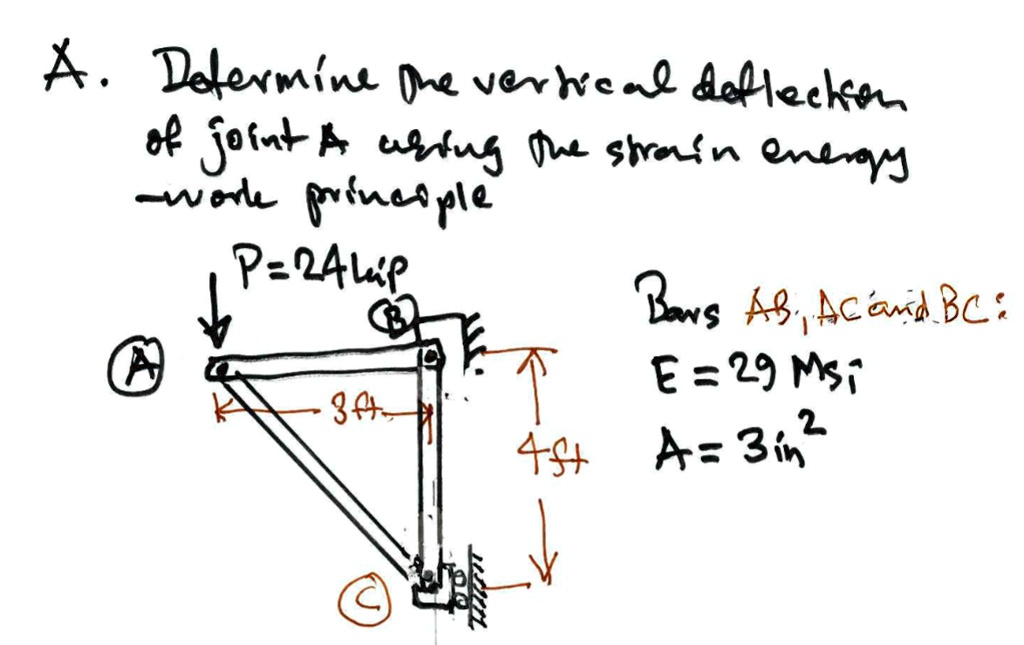 A. Determine the vertical deflection
of joint A using the strain energy
-work principle
P=24kip
B
Bars AB, AC and BC:
A
E = 29 Msi
3ft
4ft
A = 3in²
C